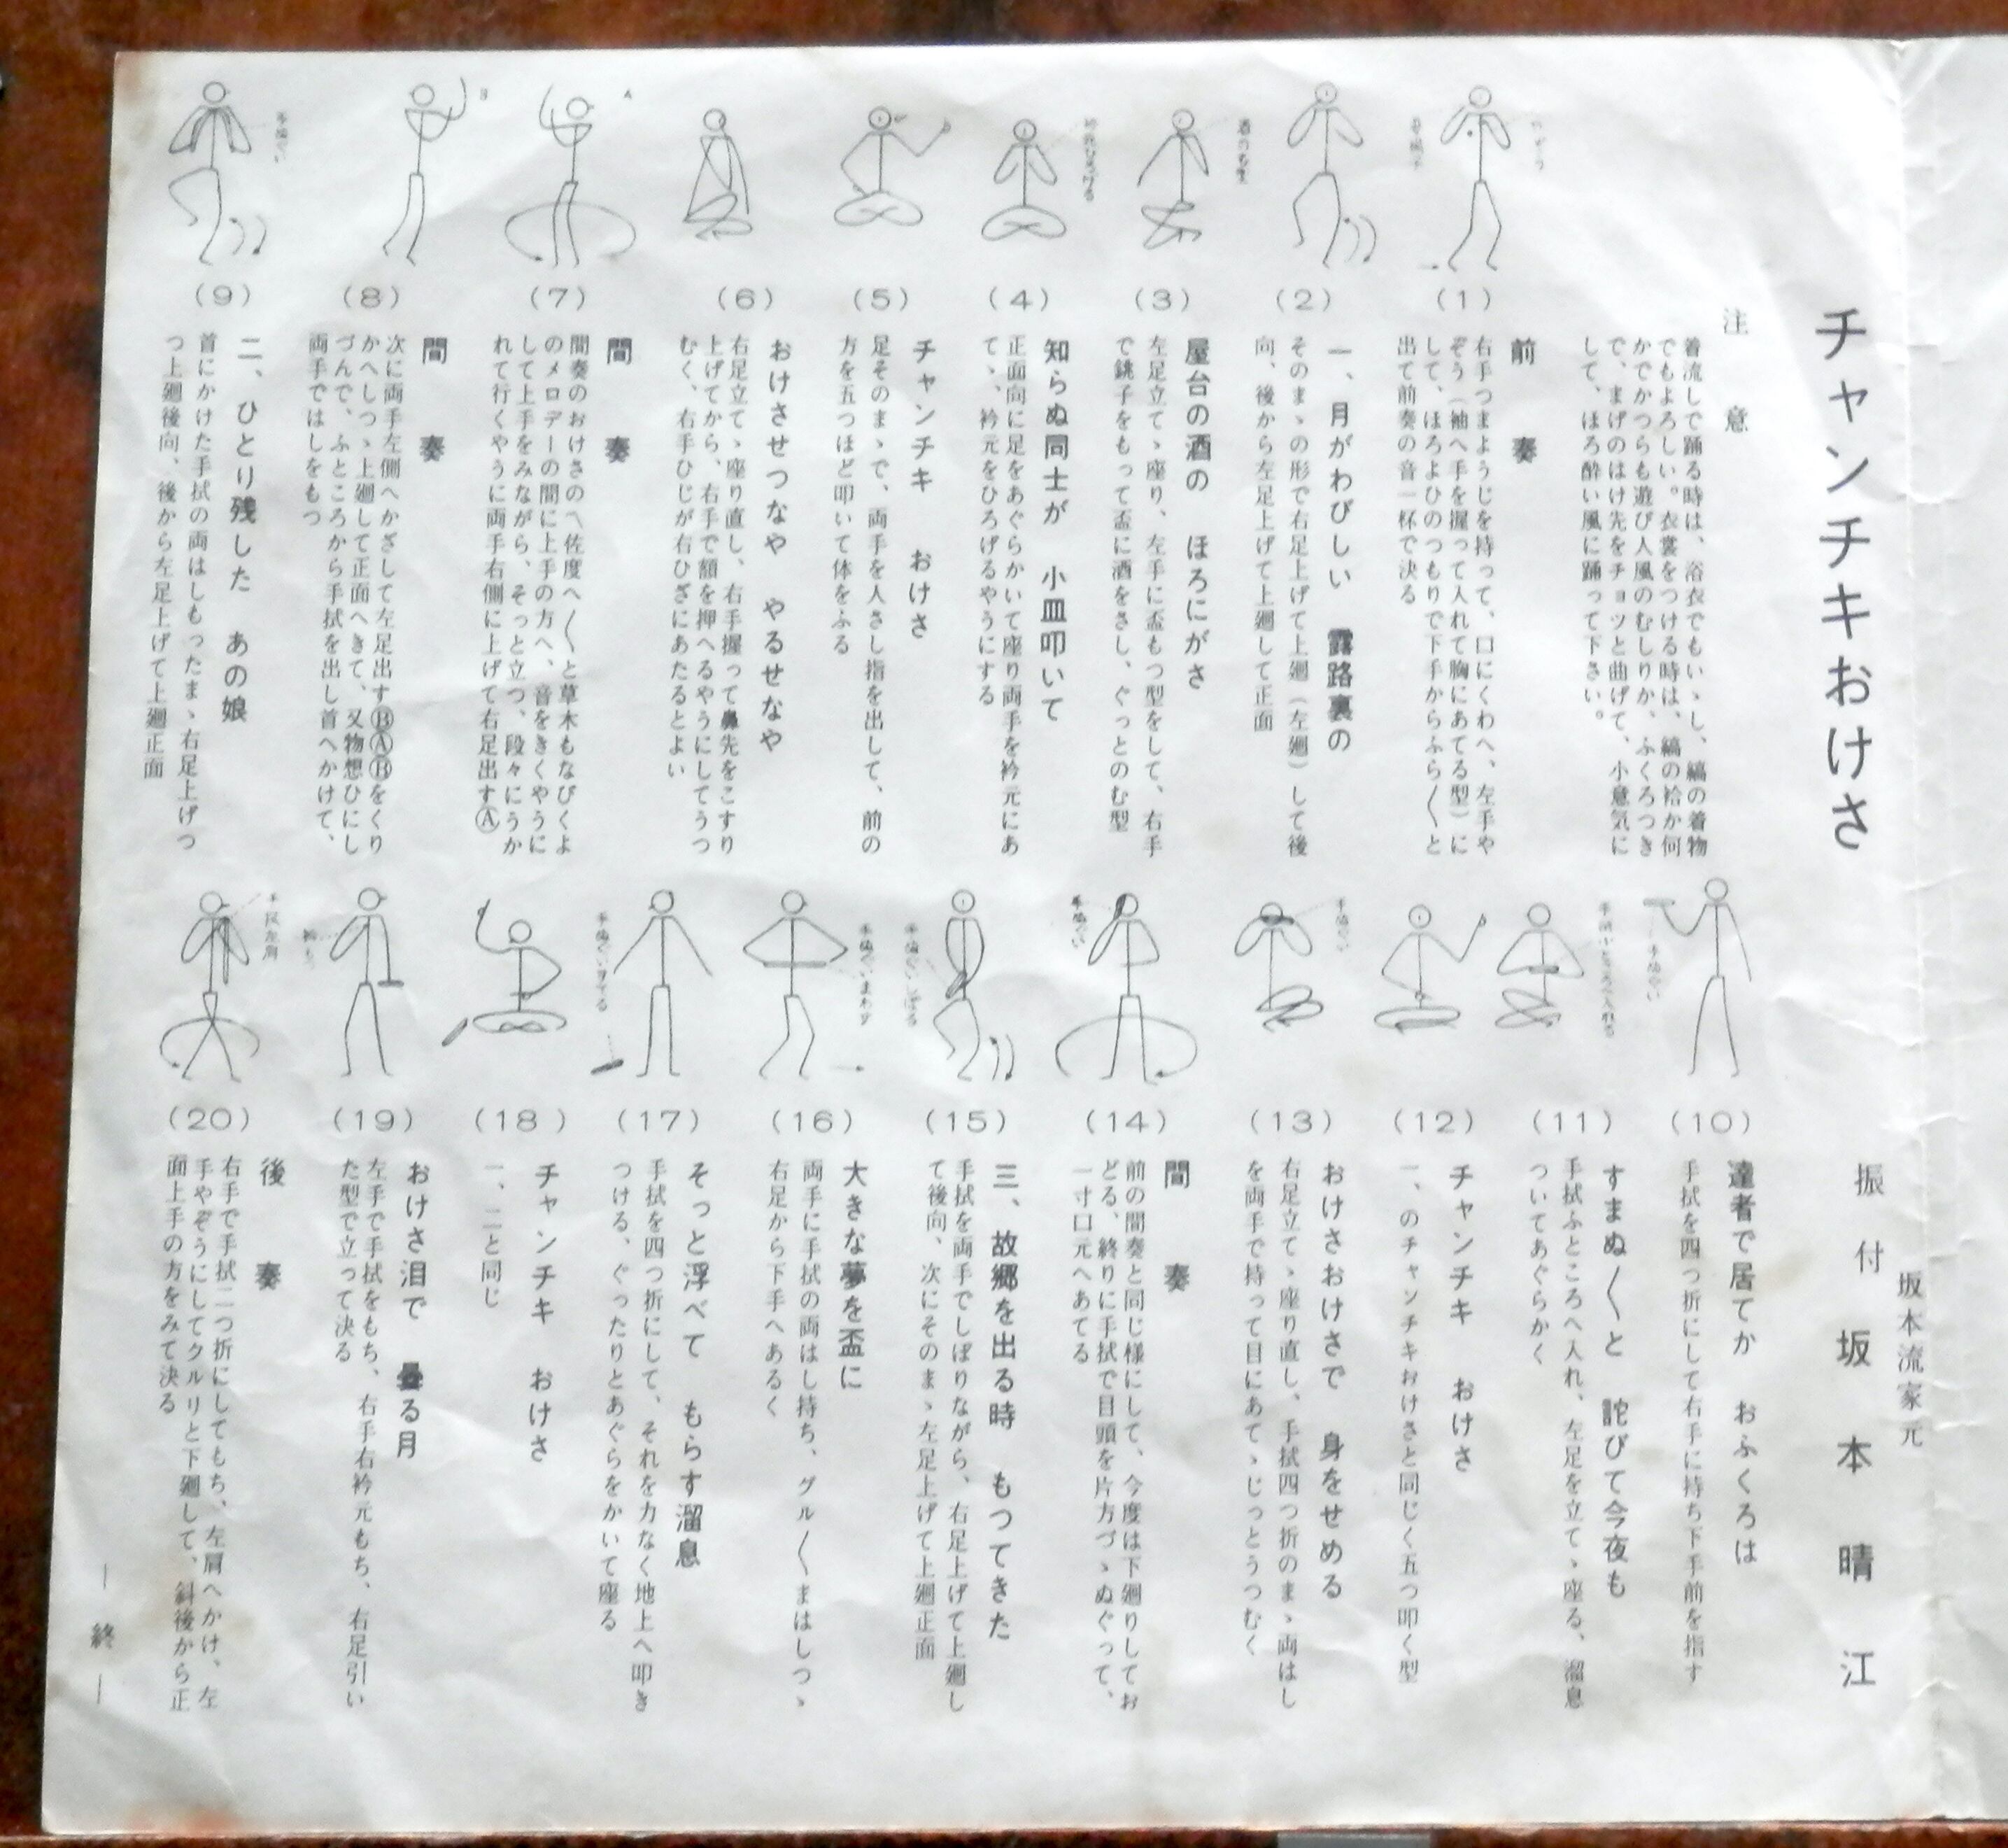 チャンチキおけさ
坂本流家元
振付 坂本晴江
注意
着流しで踊る時は、浴衣でもいゝし、縞の着物
でもよろしい。衣裳をつける時は、縞の袷か何
かでかつらも遊び人風のむしりか、ふくろつき
で、まげのはけ先をチョッと曲げて、小意気に
して、ほろ酔い風に踊って下さい。
(1)
前奏
右手つまようじを持って、口にくわへ、左手や
ぞう（袖へ手を握って入れて胸にあてる型）に
して、ほろよひのつもりで下手からふら〱と
出て前奏の音一杯で決る
(2)
一、月がわびしい 露路裏の
そのまゝの形で右足上げて上廻（左廻）して後
向、後から左足上げて上廻して正面
(3)
屋台の酒の ほろにがさ
左足立てゝ座り、左手に盃もつ型をして、右手
で銚子をもって盃に酒をさし、ぐっとのむ型
(4)
知らぬ同士が 小皿叩いて
正面向に足をあぐらかいて座り両手を衿元にあ
てゝ、衿元をひろげるやうにする
(5)
チャンチキ おけさ
足そのまゝで、両手を人さし指を出して、前の
方を五つほど叩いて体をふる
(6)
おけさせつなや やるせなや
右足立てゝ座り直し、右手握って鼻先をこすり
上げてから、右手で額を押へるやうにしてうつ
むく、右手ひじが右ひざにあたるとよい
(7)
間奏
間奏のおけさの〽佐度へ〱と草木もなびくよ
のメロデーの間に上手の方へ、音をきくやうに
して上手をみながら、そっと立つ、段々にうか
れて行くやうに両手右側に上げて右足出すⒶ
(8)
間奏
次に両手左側へかざして左足出すⒷⒶⒷをくり
かへしつゝ上廻して正面へきて、又物想ひにし
づんで、ふところから手拭を出し首へかけて、
両手ではしをもつ
(9)
二、ひとり残した あの娘
首にかけた手拭の両はしもったまゝ右足上げつ
つ上廻後向、後から左足上げて上廻正面
(10)
達者で居てか おふくろは
手拭を四つ折にして右手に持ち下手前を指す
(11)
すまぬ〱と 詫びて今夜も
手拭ふところへ入れ、左足を立てゝ座る、溜息
ついてあぐらかく
(12)
チャンチキ おけさ
一、のチャンチキおけさと同じく五つ叩く型
(13)
おけさおけさで 身をせめる
右足立てゝ座り直し、手拭四つ折のまゝ両はし
を両手で持って目にあてゝじっとうつむく
(14)
間奏
前の間奏と同じ様にして、今度は下廻りしてお
どる、終りに手拭で目頭を片方づゝぬぐって、
一寸口元へあてる
(15)
三、故郷を出る時 もつてきた
手拭を両手でしぼりながら、右足上げて上廻し
て後向、次にそのまゝ左足上げて上廻正面
(16)
大きな夢を盃に
両手に手拭の両はし持ち、グル〱まはしつゝ
右足から下手へあるく
(17)
そっと浮べて もらす溜息
手拭を四つ折にして、それを力なく地上へ叩き
つける、ぐったりとあぐらをかいて座る
(18)
チャンチキ おけさ
一、二と同じ
(19)
おけさ泪で 曇る月
左手で手拭をもち、右手右衿元もち、右足引い
た型で立って決る
(20)
後奏
右手で手拭二つ折にしてもち、左肩へかけ、左
手やぞうにしてクルリと下廻して、斜後から正
面上手の方をみて決る
― 終 ―
A
B